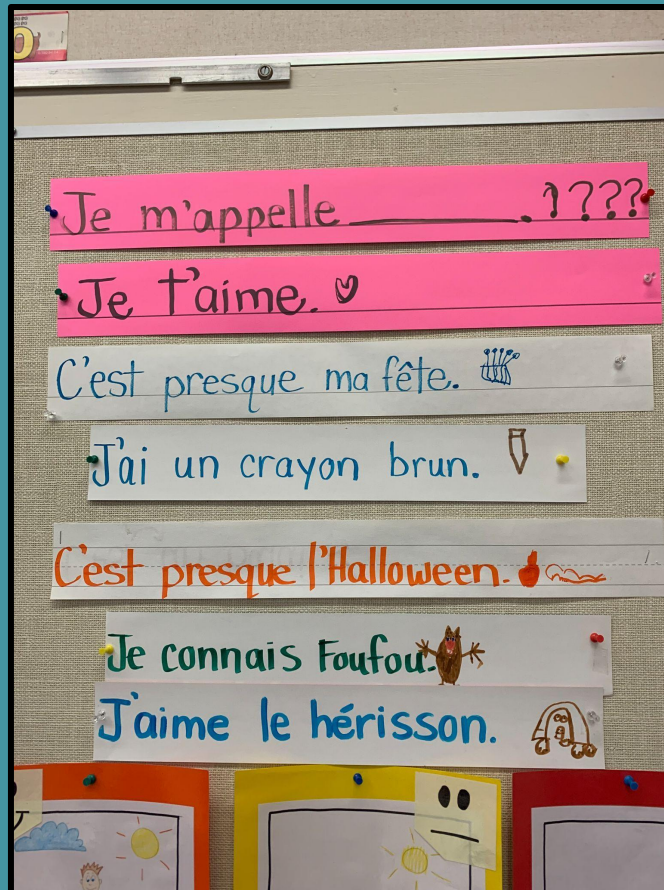 Je m'appelle ________. 1???
Je t'aime.
C'est presque ma fête.
J'ai un crayon brun.
C'est presque l'Halloween.
Je connais Foufou.
J'aime le hérisson.